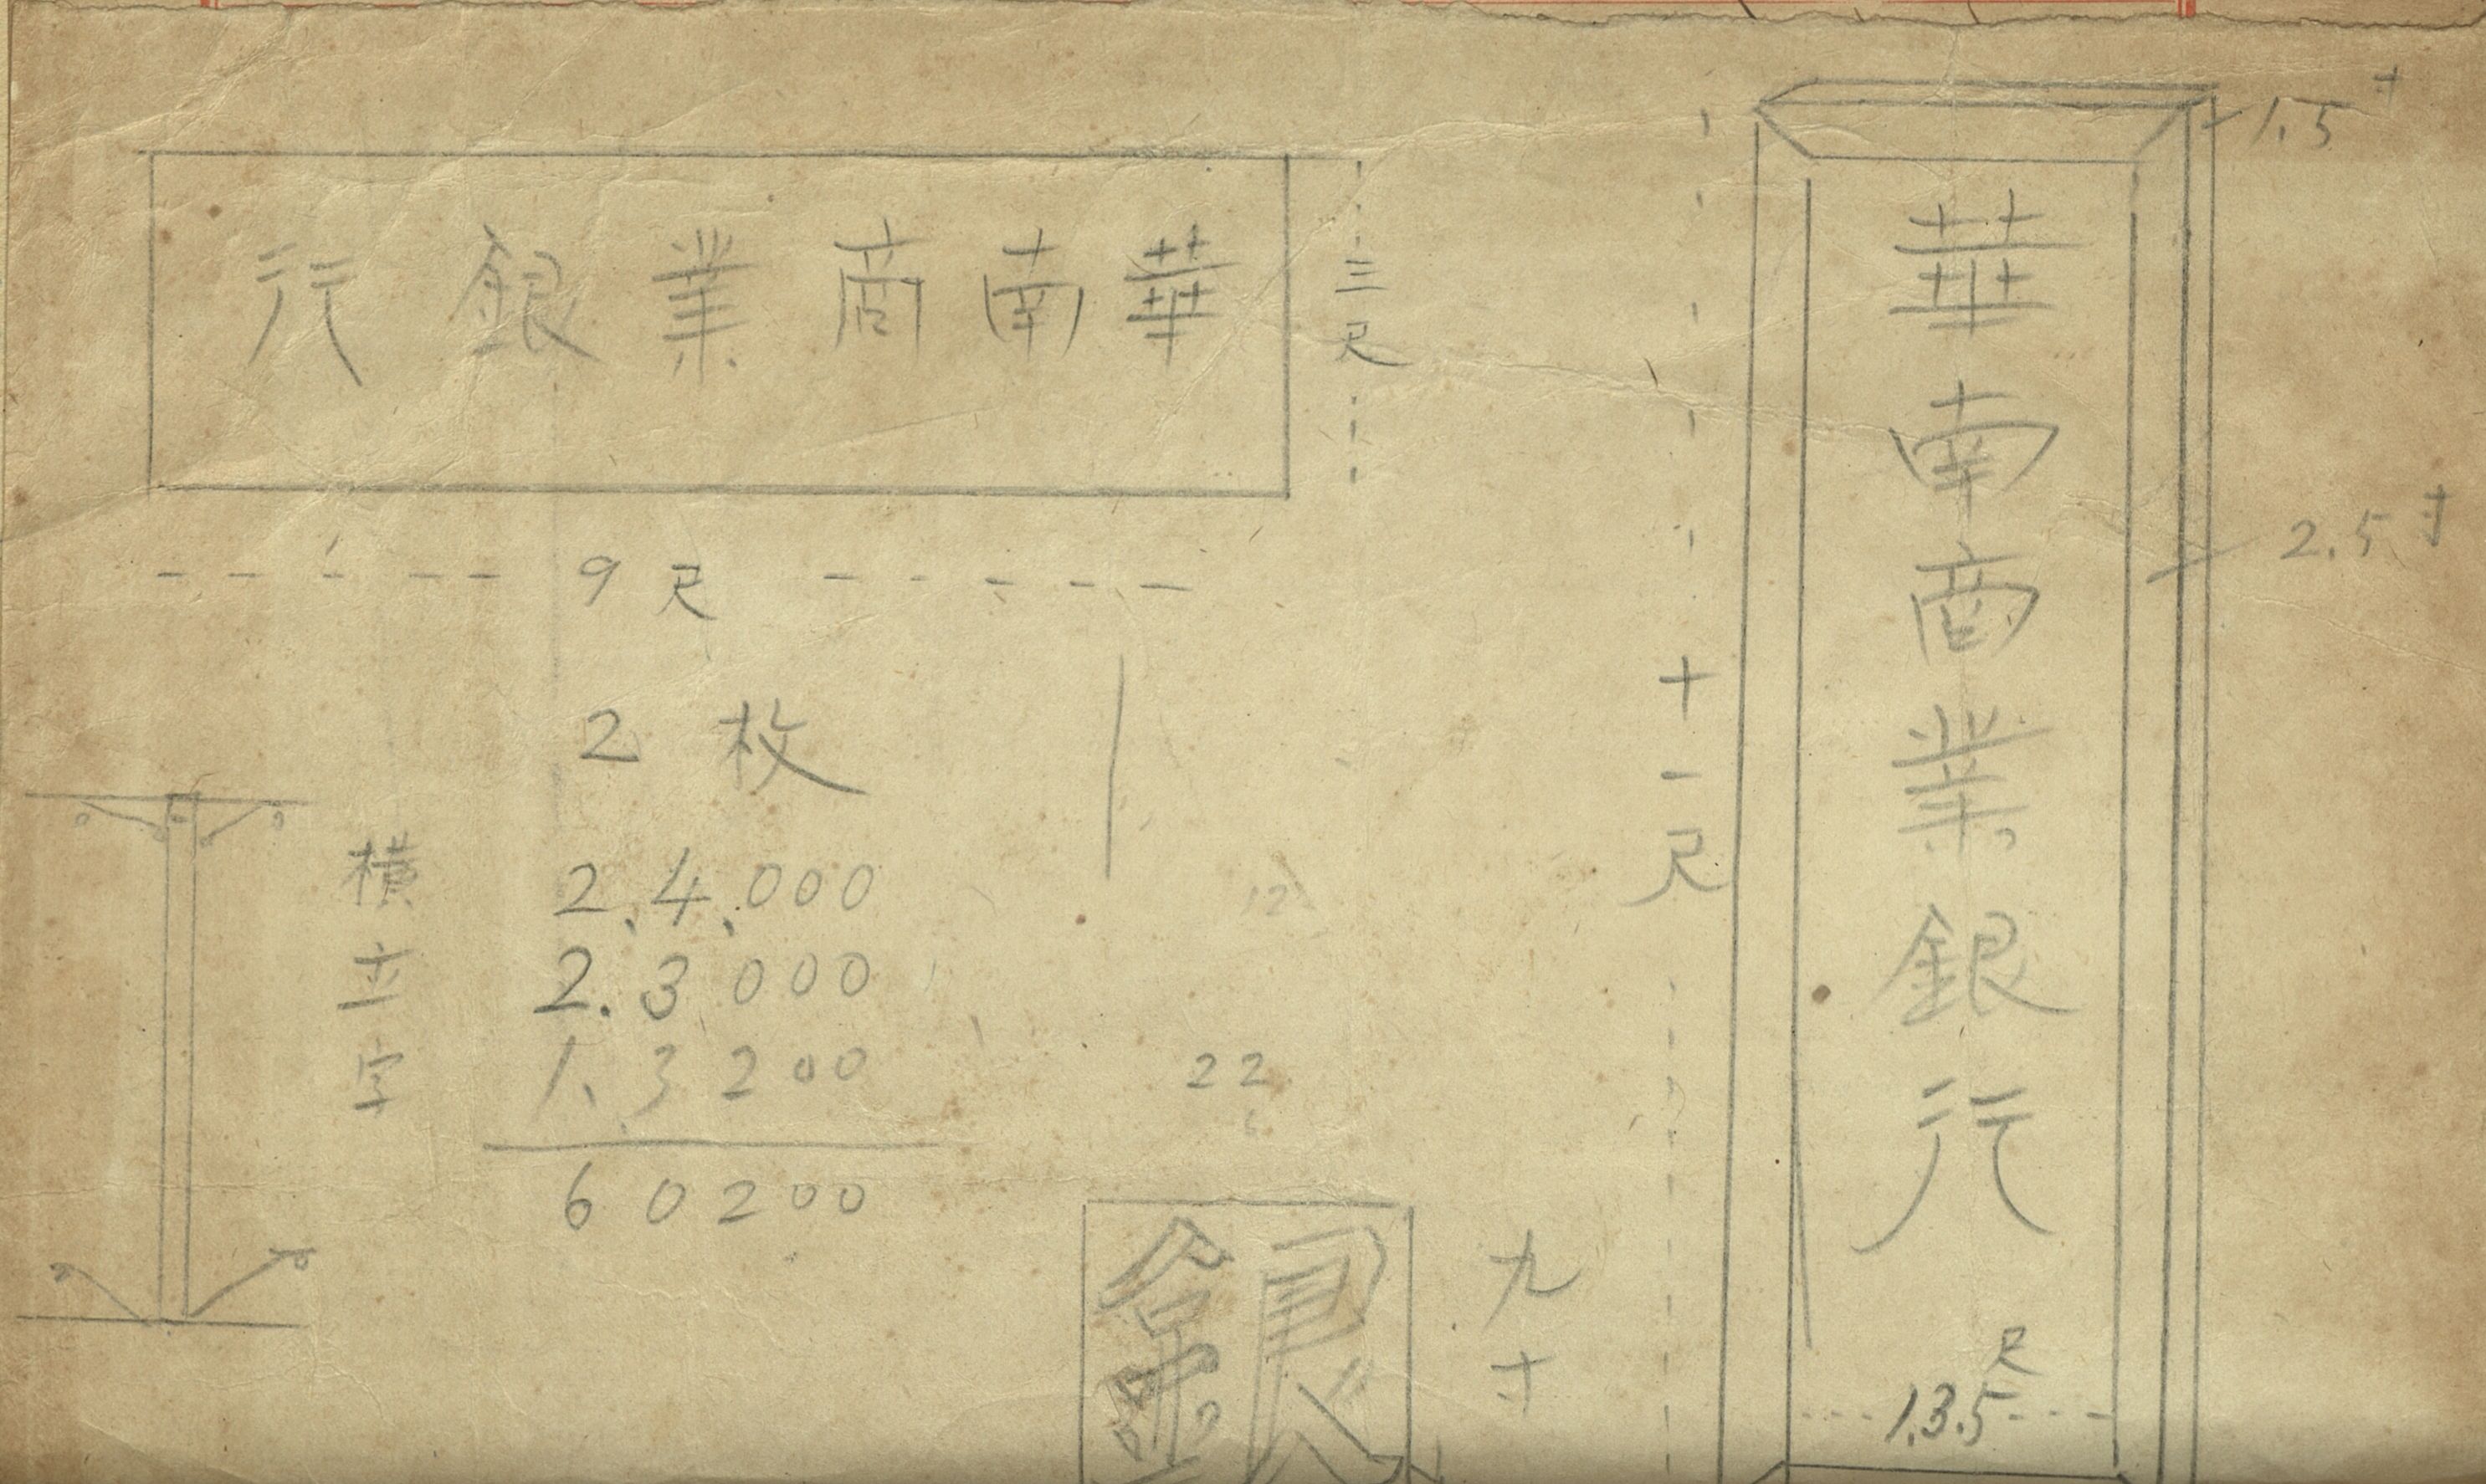 華南商業銀行
三尺
9尺
2枚
横 2.4.000
立 2.3000
字 1.3200
60200
22
銀
九寸
十一尺
華南商業銀行
1.5寸
2.5寸
1.3.5尺